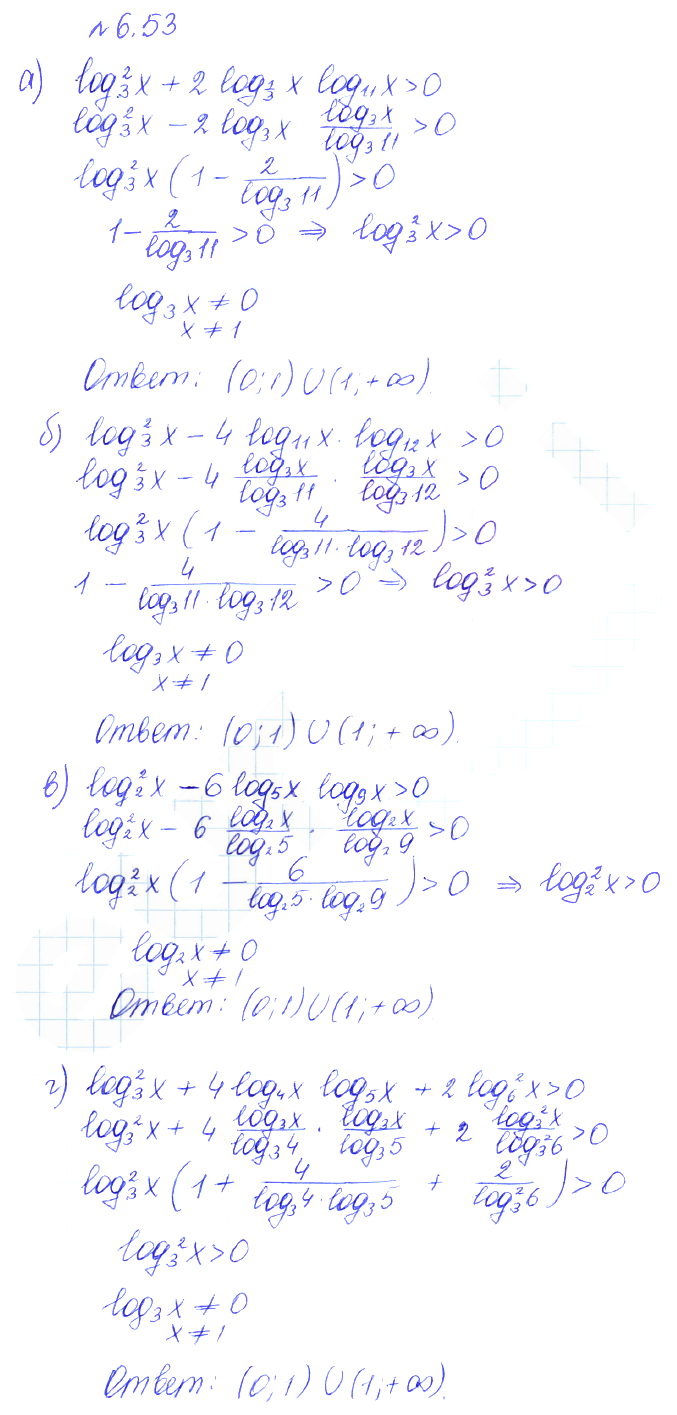 №6.53
а) log₃²x + 2 log_{1/3} x log₁₁x > 0
log₃²x − 2 log₃x \frac{log₃x}{log₃11} > 0
log₃²x (1 − \frac{2}{log₃11}) > 0
1 − \frac{2}{log₃11} > 0 ⇒ log₃²x > 0
log₃x ≠ 0
x ≠ 1
Ответ: (0;1) ∪ (1;+∞).
б) log₃²x − 4 log₁₁x · log₁₂x > 0
log₃²x − 4 \frac{log₃x}{log₃11} · \frac{log₃x}{log₃12} > 0
log₃²x (1 − \frac{4}{log₃11·log₃12}) > 0
1 − \frac{4}{log₃11·log₃12} > 0 ⇒ log₃²x > 0
log₃x ≠ 0
x ≠ 1
Ответ: (0;1) ∪ (1;+∞).
в) log₂²x − 6 log₅x log₉x > 0
log₂²x − 6 \frac{log₂x}{log₂5} · \frac{log₂x}{log₂9} > 0
log₂²x (1 − \frac{6}{log₂5·log₂9}) > 0 ⇒ log₂²x > 0
log₂x ≠ 0
x ≠ 1
Ответ: (0;1) ∪ (1;+∞)
г) log₃²x + 4 log₄x log₅x + 2 log₆²x > 0
log₃²x + 4 \frac{log₃x}{log₃4} · \frac{log₃x}{log₃5} + 2 \frac{log₃²x}{log₃²6} > 0
log₃²x (1 + \frac{4}{log₃4·log₃5} + \frac{2}{log₃²6}) > 0
log₃²x > 0
log₃x ≠ 0
x ≠ 1
Ответ: (0;1) ∪ (1;+∞).